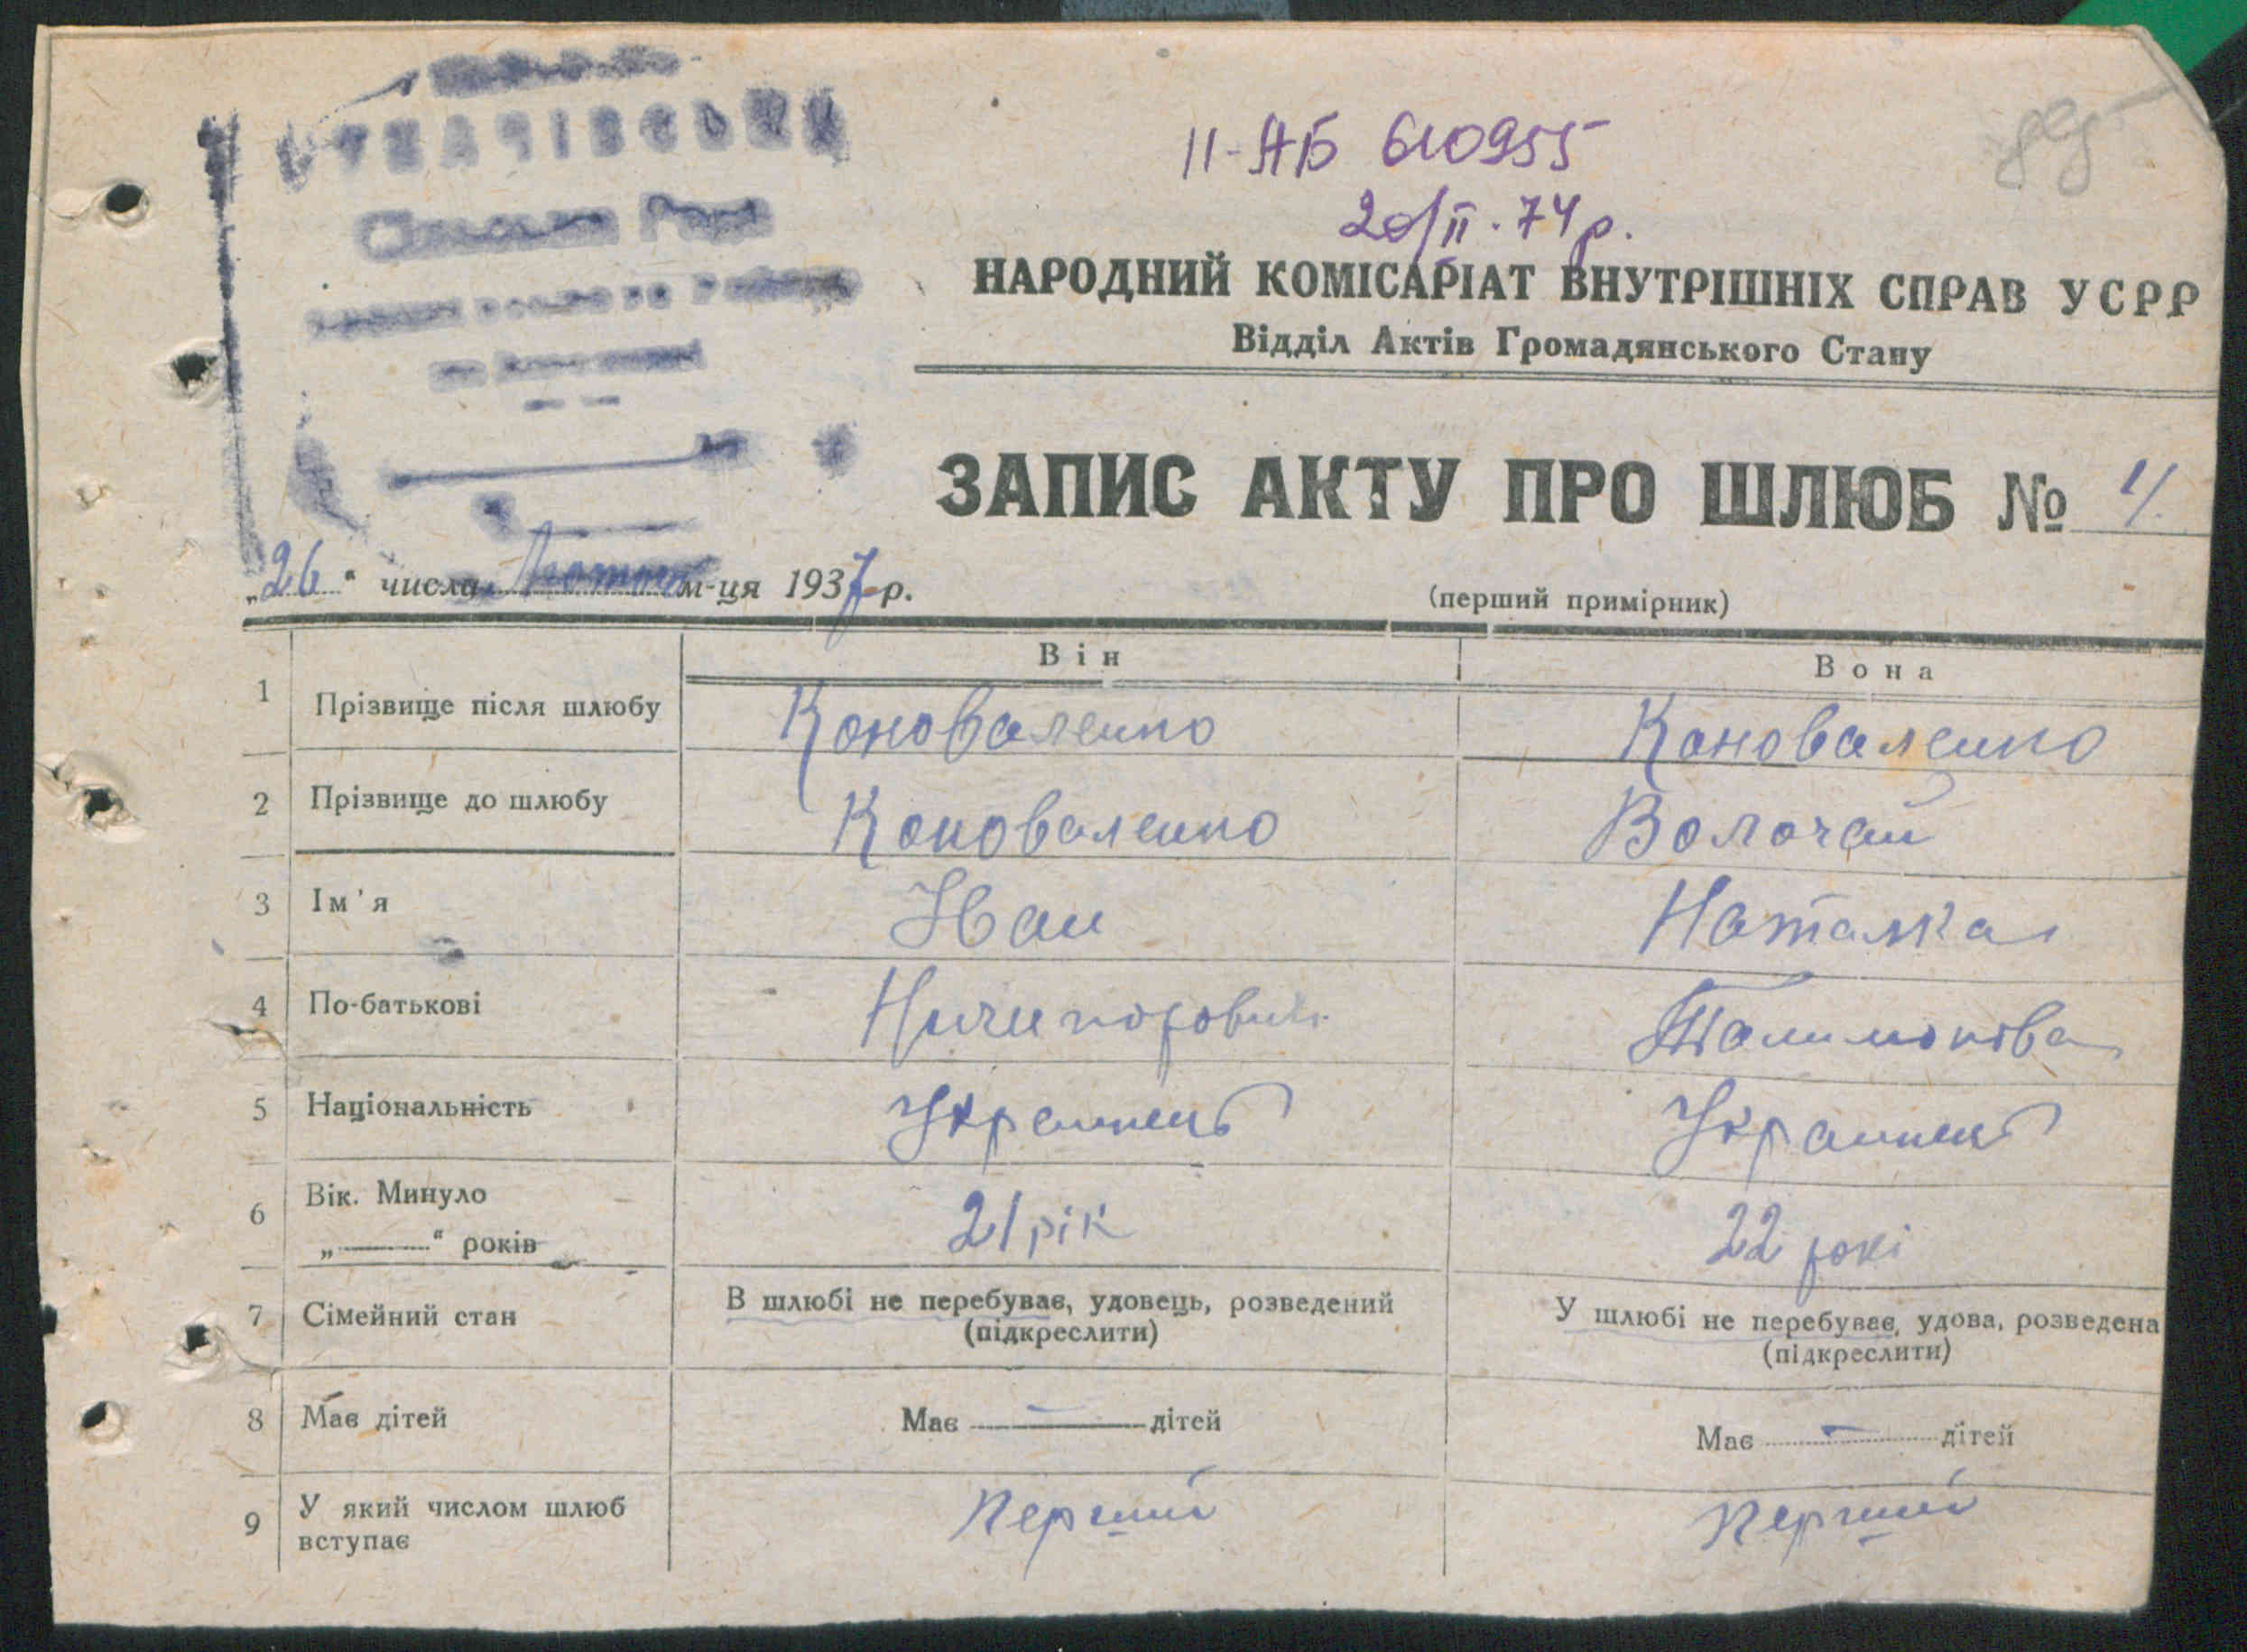 Рада
II-АБ 610955
20/II. 74 р.
НАРОДНИЙ КОМІСАРІАТ ВНУТРІШНІХ СПРАВ УСРР
Відділ Актів Громадянського Стану
ЗАПИС АКТУ ПРО ШЛЮБ №
„26" числа Лютого м-ця 1937 р.
(перший примірник)
Він Вона
1 Прізвище після шлюбу Коноваленко Коноваленко
2 Прізвище до шлюбу Коноваленко Волочай
3 Ім'я Іван Наталка
4 По-батькові Ничипорович
5 Національність Украинець Украинець
6 Вік. Минуло
„ " років 21 рік 22 рокі
7 Сімейний стан В шлюбі не перебуває, удовець, розведений У шлюбі не перебуває, удова, розведена
(підкреслити) (підкреслити)
8 Має дітей Має — дітей Має — дітей
9 У який числом шлюб
вступає Перший Перший